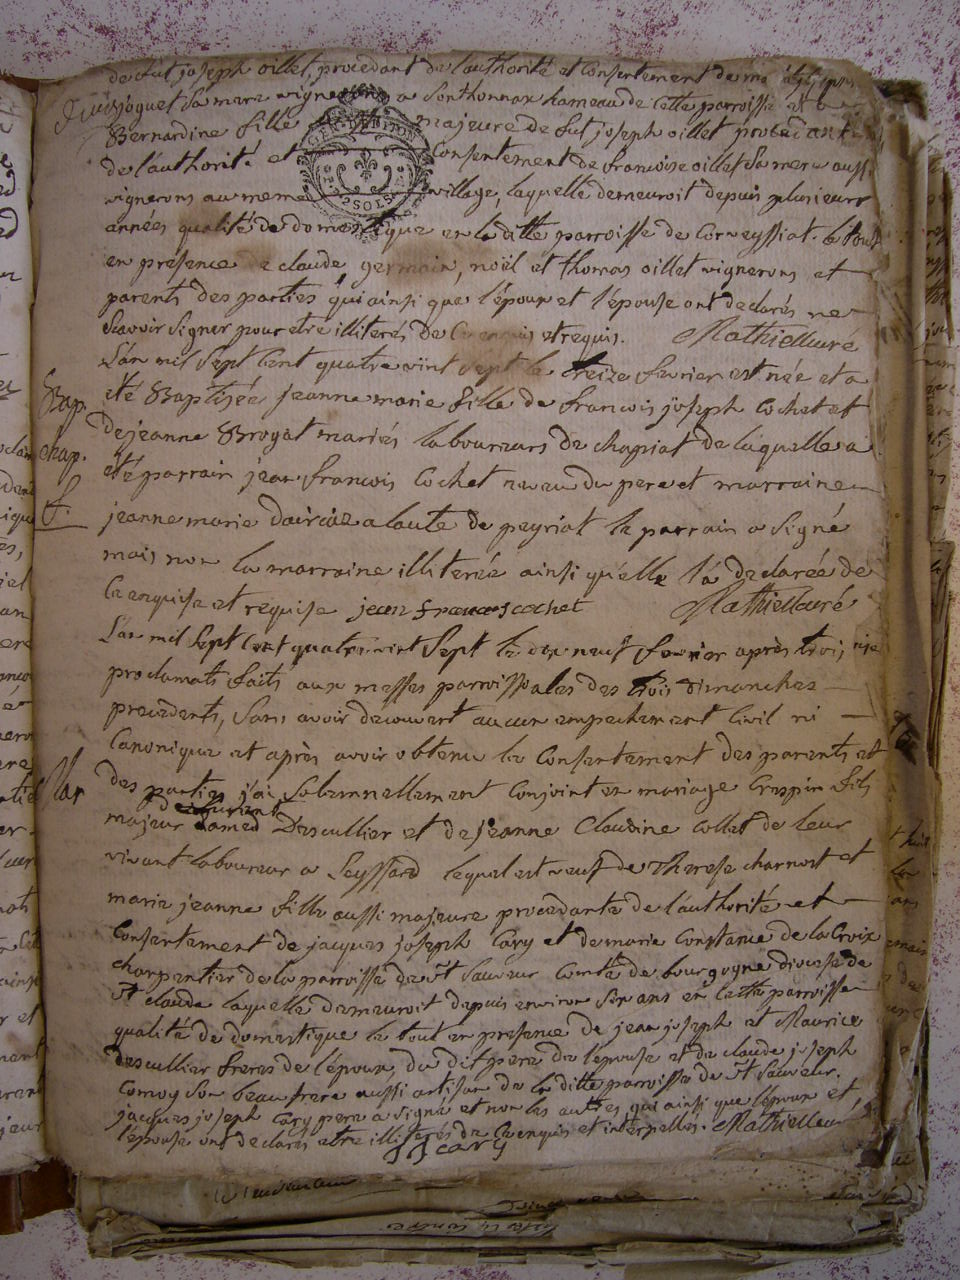 de fut joseph oillet, procedant de l'authorité et Consentement de
joguet Sa mere vignerons a Sonthonnax hameau de cette parroisse et a
Bernardine fille majeure de fut joseph oillet procedante
de l'authorité et Consentement de francoise oillet Sa mere aussi
vignerons au meme village, laquelle demeuroit depuis plusieurs
années qualité de domestique en laditte parroisse de Corveyssiat. le tout
en presence de claude germain, noël et thomas oillet vignerons et
parents des parties qui ainsi que l'époux et l'épouse ont declarés ne
Scavoir Signer pour etre illiterés de Ce enquis et requis. Mathieu curé
L'an mil Sept Cent quatre vint Sept le treize fevrier est née et a
Bap. eté Baptisée jeanne marie fille de francois joseph Cochet et
de jeanne Broyat mariés laboureurs de chapiat de laquelle a
chap. eté parrain jean francois Cochet neveu du pere et marraine
f. jeanne marie a laute de peyriat le parrain a Signé
mais non la marraine illiterée ainsi qu'elle l'a declarée de
Ce enquise et requise jean francois cochet Mathieu curé
L'an mil Sept Cent quatre vint Sept le dix neuf fevrier après trois
proclamats faits aux messes parroissiales des trois dimanches
precedents, Sans avoir decouvert aucun empechement Civil ni
Canonique et après avoir obtenu le Consentement des parents et
Mar des parties j'ai Solemnellement Conjoint en mariage Crispin fils
majeur Descullier et de jeanne Claudine Collet de leur
vivant laboureur a Seyssard lequel est veuf de Therese charnost et
marie jeanne fille aussi majeure procedante de l'authorité et
Consentement de jacques joseph Cary et de marie Constance de la Croix
charpentier de la parroisse de St Sauveur Comté de bourgogne diocese de
St claude laquelle demeuroit depuis environ Six ans en cette parroisse
qualité de domestique le tout en presence de jean joseph et Maurice
descullier freres de l'époux, du dit pere de l'épouse et de claude joseph
Comoy Son beau frere aussi artisan de la ditte parroisse de St Sauveur.
jacques joseph Cary pere a signé et non les autres, qui ainsi que l'époux et
l'épouse ont declarés etre illiterés de Ce enquis et interpellés. Mathieu curé
J J cary